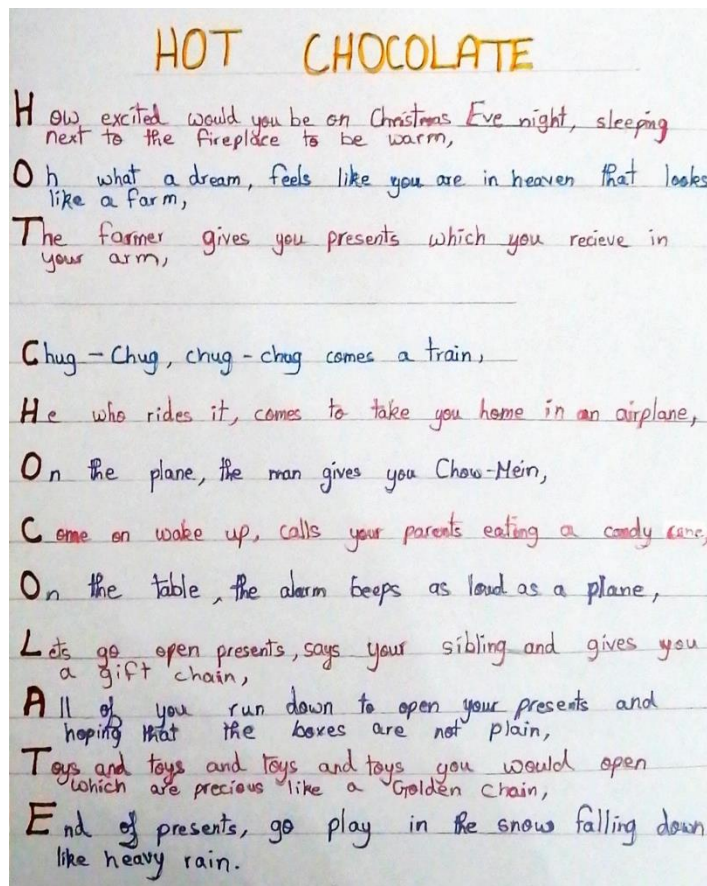 HOT CHOCOLATE
How excited would you be on Christmas Eve night, sleeping
next to the fireplace to be warm,
Oh what a dream, feels like you are in heaven that looks
like a farm,
The farmer gives you presents which you recieve in
your arm,
Chug - Chug, chug - chug comes a train,
He who rides it, comes to take you home in an airplane,
On the plane, the man gives you Chow-Mein,
Come on wake up, calls your parents eating a candy cane,
On the table, the alarm beeps as loud as a plane,
Lets go open presents, says your sibling and gives you
a gift chain,
All of you run down to open your presents and
hoping that the boxes are not plain,
Toys and toys and toys and toys you would open
which are precious like a Golden Chain,
End of presents, go play in the snow falling down
like heavy rain.